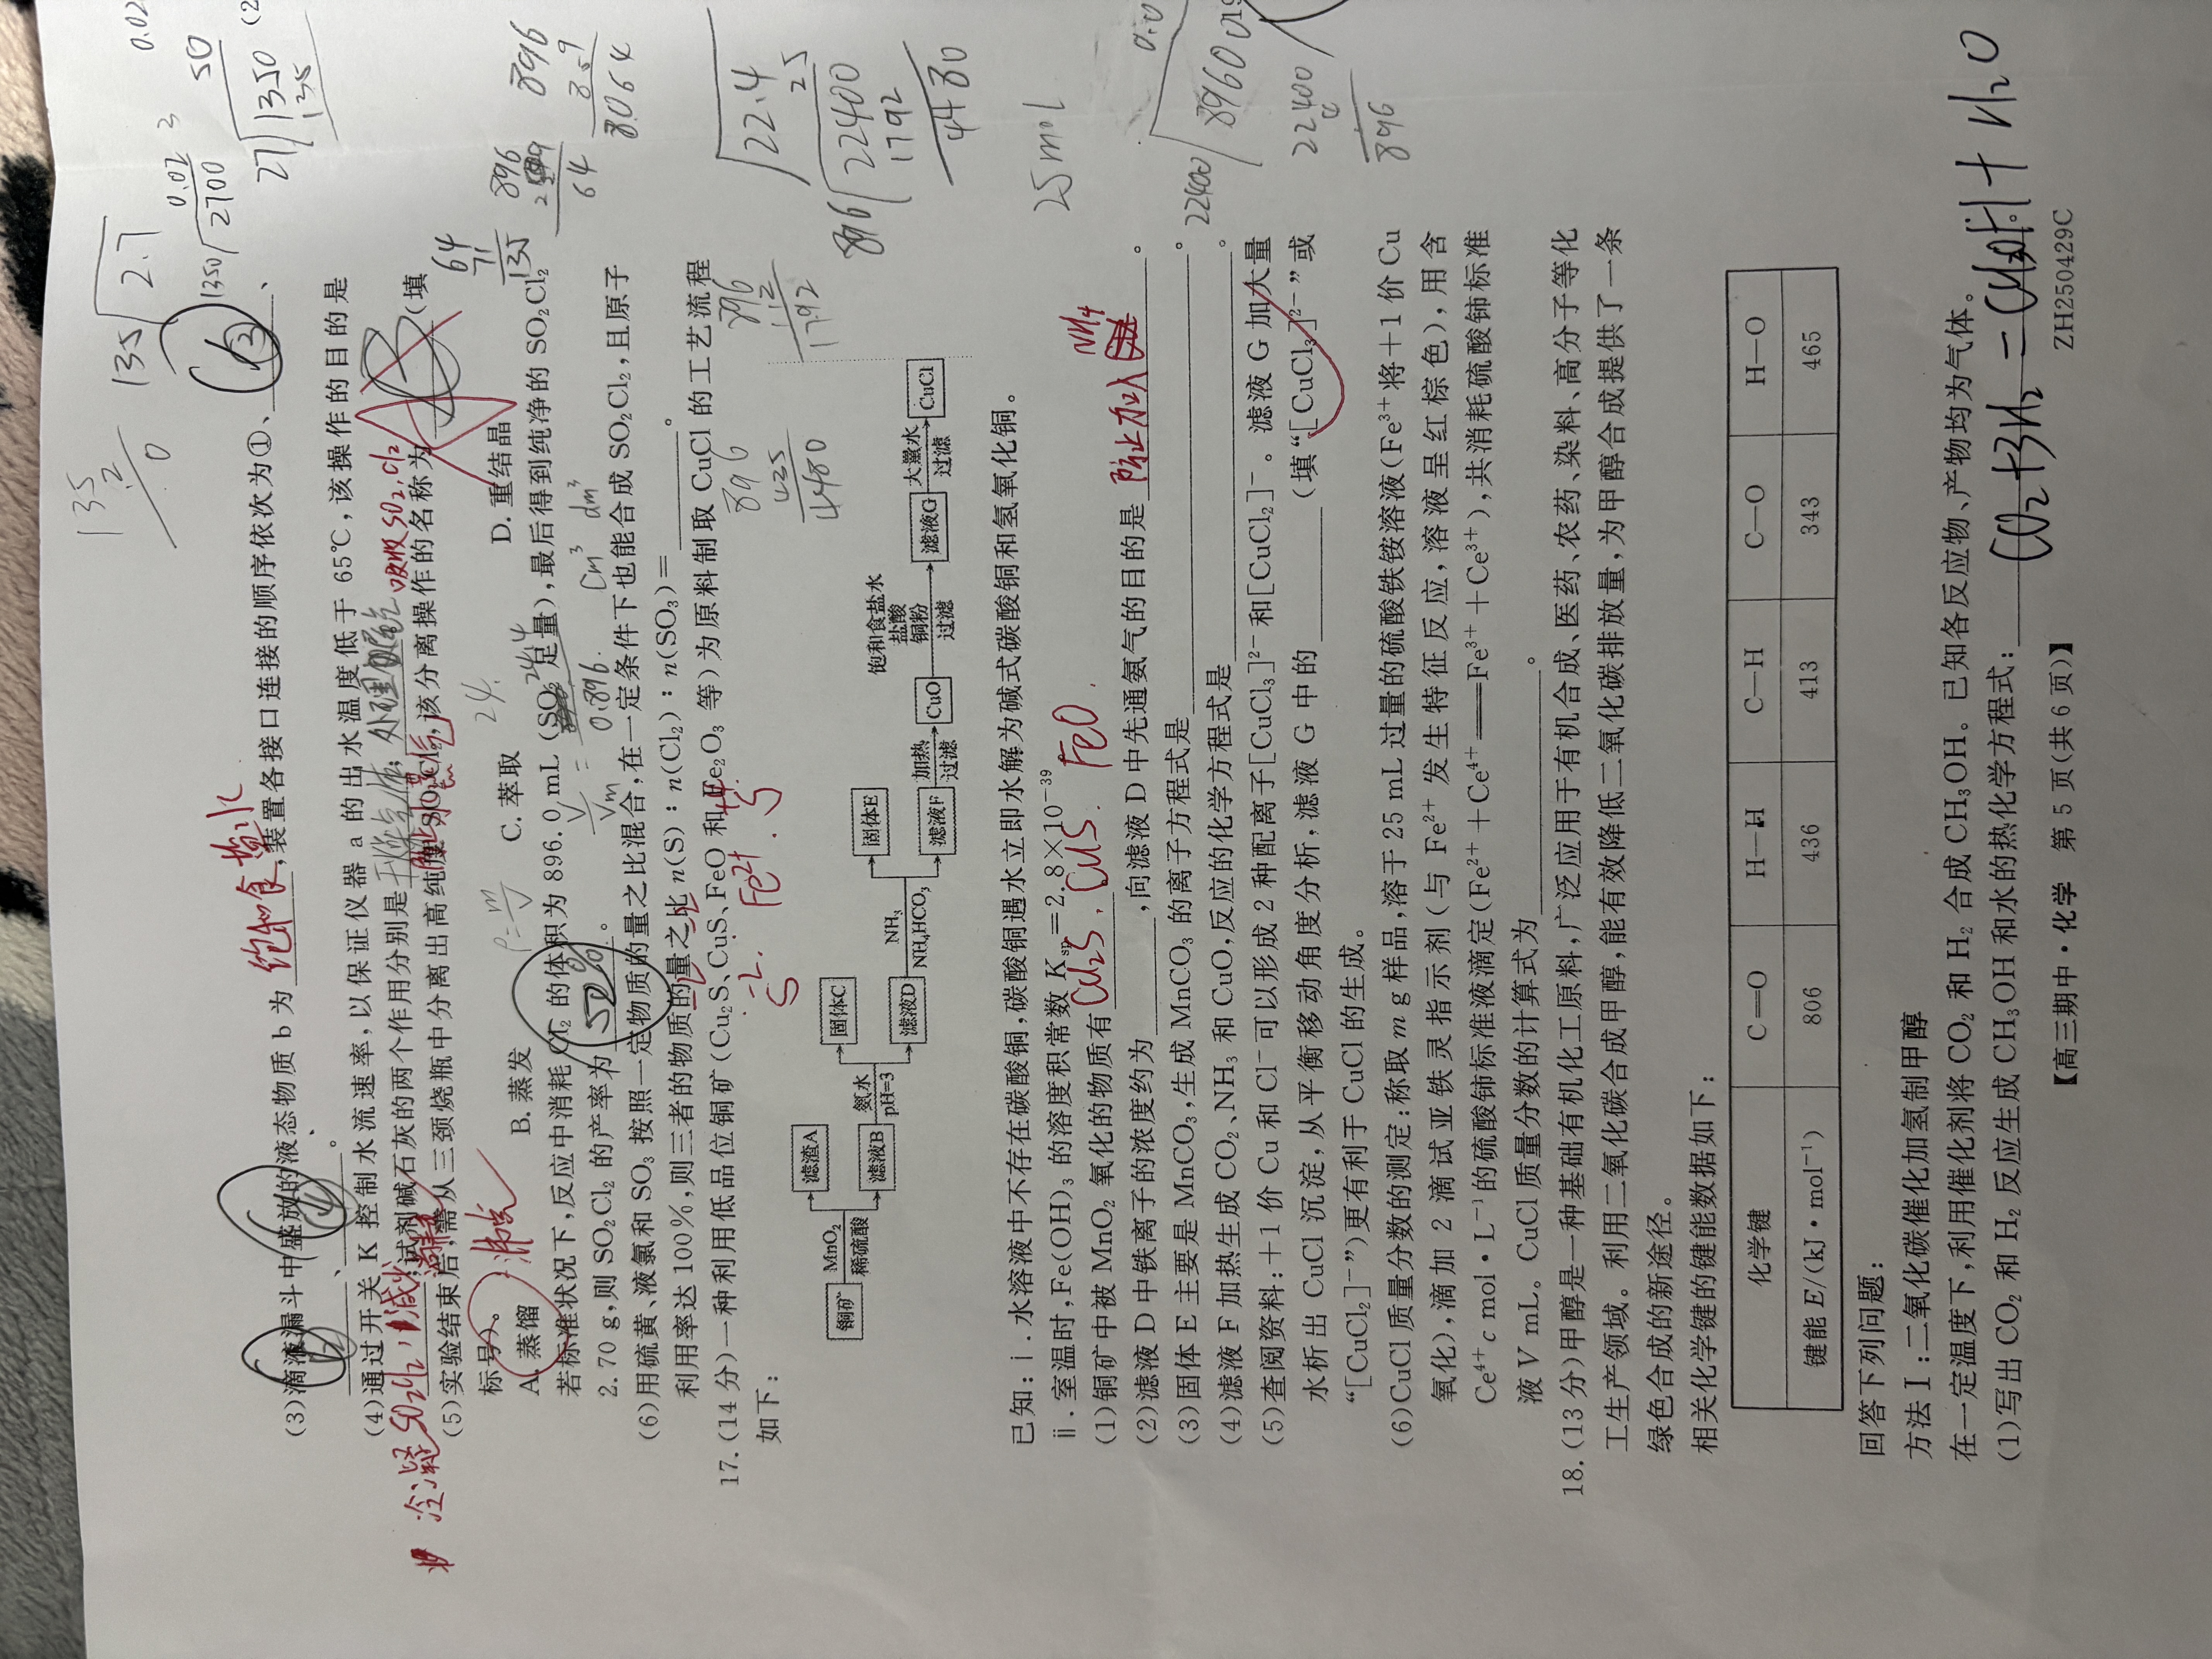 (3)滴液漏斗中盛放的液态物质 b 为 饱和食盐水 ,装置各接口连接的顺序依次为①、
、 、 。
(4)通过开关 K 控制水流速率,以保证仪器 a 的出水温度低于 65℃,该操作的目的是
冷凝SO2Cl2,减少 ;试剂碱石灰的两个作用分别是 处理尾气 吸收SO2,Cl2
(5)实验结束后,需从三颈烧瓶中分离出高纯度 SO₂Cl₂,该分离操作的名称为 (填
标号)。
A. 蒸馏 B. 蒸发 C. 萃取 D. 重结晶
沸点
若标准状况下,反应中消耗 Cl₂ 的体积为 896.0 mL(SO₂ 足量),最后得到纯净的 SO₂Cl₂
2.70 g,则 SO₂Cl₂ 的产率为 50% 。
(6)用硫黄、液氯和 SO₃ 按照一定物质的量之比混合,在一定条件下也能合成 SO₂Cl₂,且原子
利用率达 100%,则三者的物质的量之比 n(S)∶n(Cl₂)∶n(SO₃)= 。
17.(14 分)一种利用低品位铜矿(Cu₂S、CuS、FeO 和 Fe₂O₃ 等)为原料制取 CuCl 的工艺流程
如下:
铜矿 MnO₂ 稀硫酸 滤渣A 滤液B 氨水 pH=3 固体C 滤液D NH₃ NH₄HCO₃ 固体E 滤液F 加热 过滤 CuO 饱和食盐水 盐酸 铜粉 过滤 滤液G 大量水 过滤 CuCl
已知:ⅰ. 水溶液中不存在碳酸铜,碳酸铜遇水立即水解为碱式碳酸铜和氢氧化铜。
ⅱ. 室温时,Fe(OH)₃ 的溶度积常数 Ksp=2.8×10⁻³⁹
(1)铜矿中被 MnO₂ 氧化的物质有 Cu2S,CuS.FeO. 。
(2)滤液 D 中铁离子的浓度约为 ,向滤液 D 中先通氨气的目的是 防止加入 NH4 。
(3)固体 E 主要是 MnCO₃,生成 MnCO₃ 的离子方程式是 。
(4)滤液 F 加热生成 CO₂、NH₃ 和 CuO,反应的化学方程式是 。
(5)查阅资料:+1 价 Cu 和 Cl⁻ 可以形成 2 种配离子[CuCl₃]²⁻ 和[CuCl₂]⁻。滤液 G 加大量
水析出 CuCl 沉淀,从平衡移动角度分析,滤液 G 中的 (填“[CuCl₃]²⁻”或
“[CuCl₂]⁻”)更有利于 CuCl 的生成。
(6)CuCl 质量分数的测定:称取 m g 样品,溶于 25 mL 过量的硫酸铁铵溶液(Fe³⁺将+1 价 Cu
氧化),滴加 2 滴试亚铁灵指示剂(与 Fe²⁺ 发生特征反应,溶液呈红棕色),用含
Ce⁴⁺ c mol·L⁻¹ 的硫酸铈标准液滴定(Fe²⁺+Ce⁴⁺══Fe³⁺+Ce³⁺),共消耗硫酸铈标准
液 V mL。CuCl 质量分数的计算式为 。
18.(13 分)甲醇是一种基础有机化工原料,广泛应用于有机合成、医药、农药、染料、高分子等化
工生产领域。利用二氧化碳合成甲醇,能有效降低二氧化碳排放量,为甲醇合成提供了一条
绿色合成的新途径。
相关化学键的键能数据如下:
化学键 C═O H—H C—H C—O H—O
键能 E/(kJ·mol⁻¹) 806 436 413 343 465
回答下列问题:
方法Ⅰ:二氧化碳催化加氢制甲醇
在一定温度下,利用催化剂将 CO₂ 和 H₂ 合成 CH₃OH。已知各反应物、产物均为气体。
(1)写出 CO₂ 和 H₂ 反应生成 CH₃OH 和水的热化学方程式: CO2+3H2=CH3OH+H2O
【高三期中·化学 第 5 页(共 6 页)】 ZH250429C
25mol